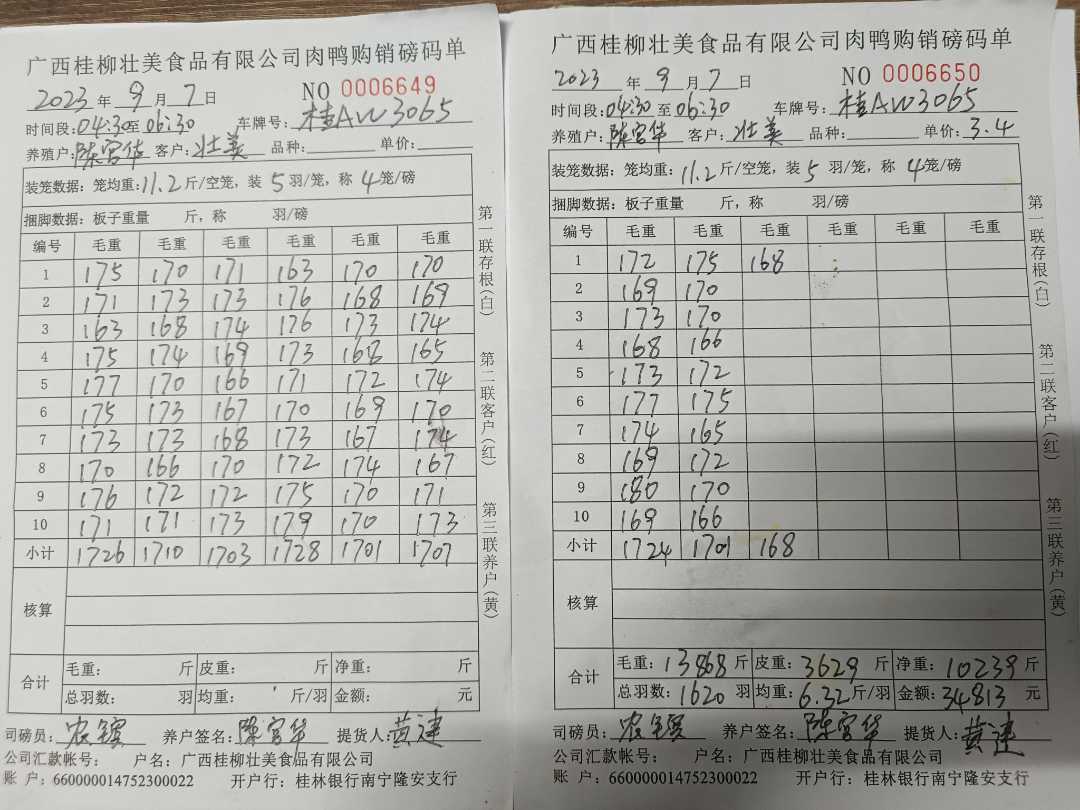 广西桂柳壮美食品有限公司肉鸭购销磅码单
2023年9月7日 NO 0006649
时间段:04:30至06:30 车牌号:桂AW3065
养殖户:陈宫华 客户:壮美 品种: 单价:
装笼数据:笼均重:11.2斤/空笼,装5羽/笼,称4笼/磅
捆脚数据:板子重量 斤,称 羽/磅
编号 毛重 毛重 毛重 毛重 毛重 毛重
1 175 170 171 163 170 170
2 171 173 173 176 168 169
3 163 168 174 176 173 174
4 175 174 169 173 168 165
5 177 170 166 171 172 174
6 175 173 167 170 169 170
7 173 173 168 173 167 174
8 170 166 170 172 174 167
9 176 172 172 175 170 171
10 171 171 173 179 170 173
小计 1726 1710 1703 1728 1701 1707
核算
合计 毛重: 斤 皮重: 斤 净重: 斤
总羽数: 羽 均重: 斤/羽 金额: 元
司磅员: 养户签名:陈宫华 提货人:黄建
公司汇款帐号: 户名:广西桂柳壮美食品有限公司
账 户:660000014752300022 开户行:桂林银行南宁隆安支行
第一联存根(白)
第二联客户(红)
第三联养户(黄)
广西桂柳壮美食品有限公司肉鸭购销磅码单
2023年9月7日 NO 0006650
时间段:04:30至06:30 车牌号:桂AW3065
养殖户:陈宫华 客户:壮美 品种: 单价:3.4
装笼数据:笼均重:11.2斤/空笼,装5羽/笼,称4笼/磅
捆脚数据:板子重量 斤,称 羽/磅
编号 毛重 毛重 毛重 毛重 毛重 毛重
1 172 175 168
2 169 170
3 173 170
4 168 166
5 173 172
6 177 175
7 174 165
8 169 172
9 180 170
10 169 166
小计 1724 1701 168
核算
合计 毛重:13868斤 皮重:3629斤 净重:10239斤
总羽数:1620羽 均重:6.32斤/羽 金额:34813元
司磅员: 养户签名:陈宫华 提货人:黄建
公司汇款帐号: 户名:广西桂柳壮美食品有限公司
账 户:660000014752300022 开户行:桂林银行南宁隆安支行
第一联存根(白)
第二联客户(红)
第三联养户(黄)